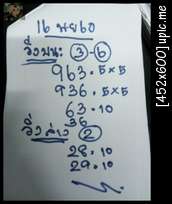 16 พย 60
วิ่งบน: 3-6
963 . 5 x 5
936 . 5 x 5
63 . 10
36
วิ่งล่าง 2
28 . 10
29 . 10
[452x600] upic.me